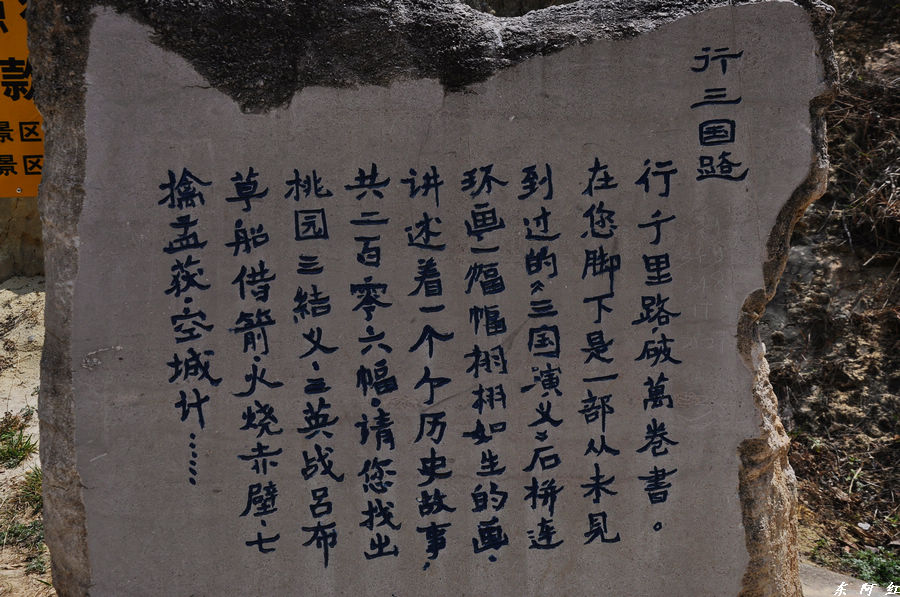 行三国路
行千里路,破萬卷書。
在您脚下是一部从未见
到过的《三国演义》石拼连
环画一幅幅栩栩如生的画,
讲述着一个个历史故事,
共二百零六幅,请您找出
桃园三結义、三英战吕布
草船借箭、火烧赤壁、七
擒孟获、空城计……
款
景区
景区
东阿红